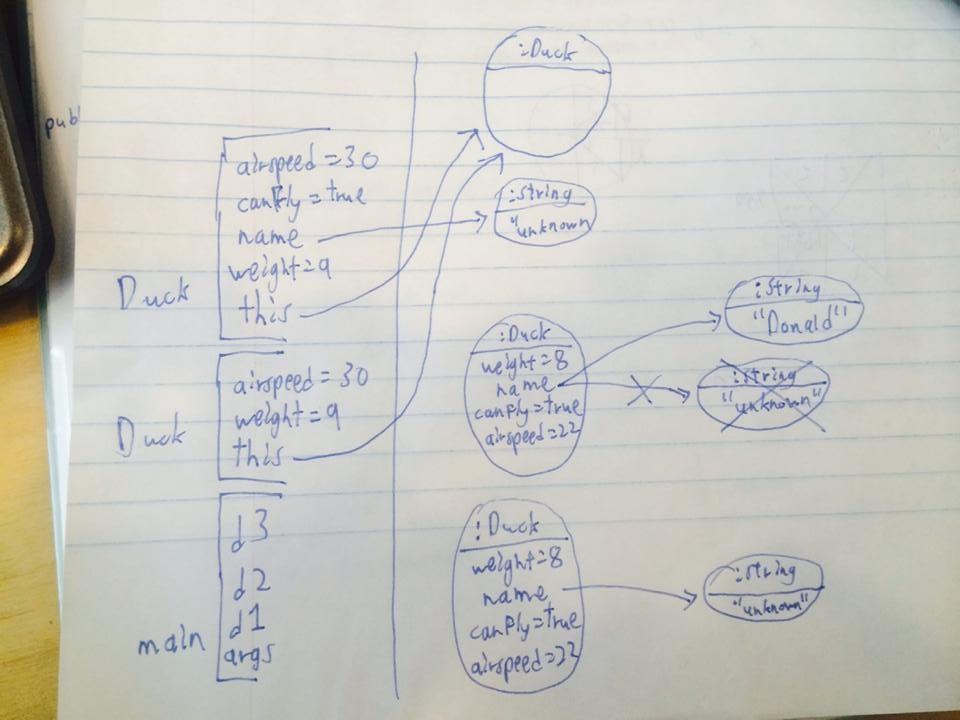 publ
airspeed = 30
canFly = true
name
weight = 9
this
Duck
airspeed = 30
weight = 9
this
Duck
d3
d2
d1
args
main
:Duck
:string
"unknown
:Duck
weight=8
name
canFly=true
airspeed=22
:String
"Donald"
:string
"unknown"
:Duck
weight=8
name
canFly=true
airspeed=22
:string
"unknown"